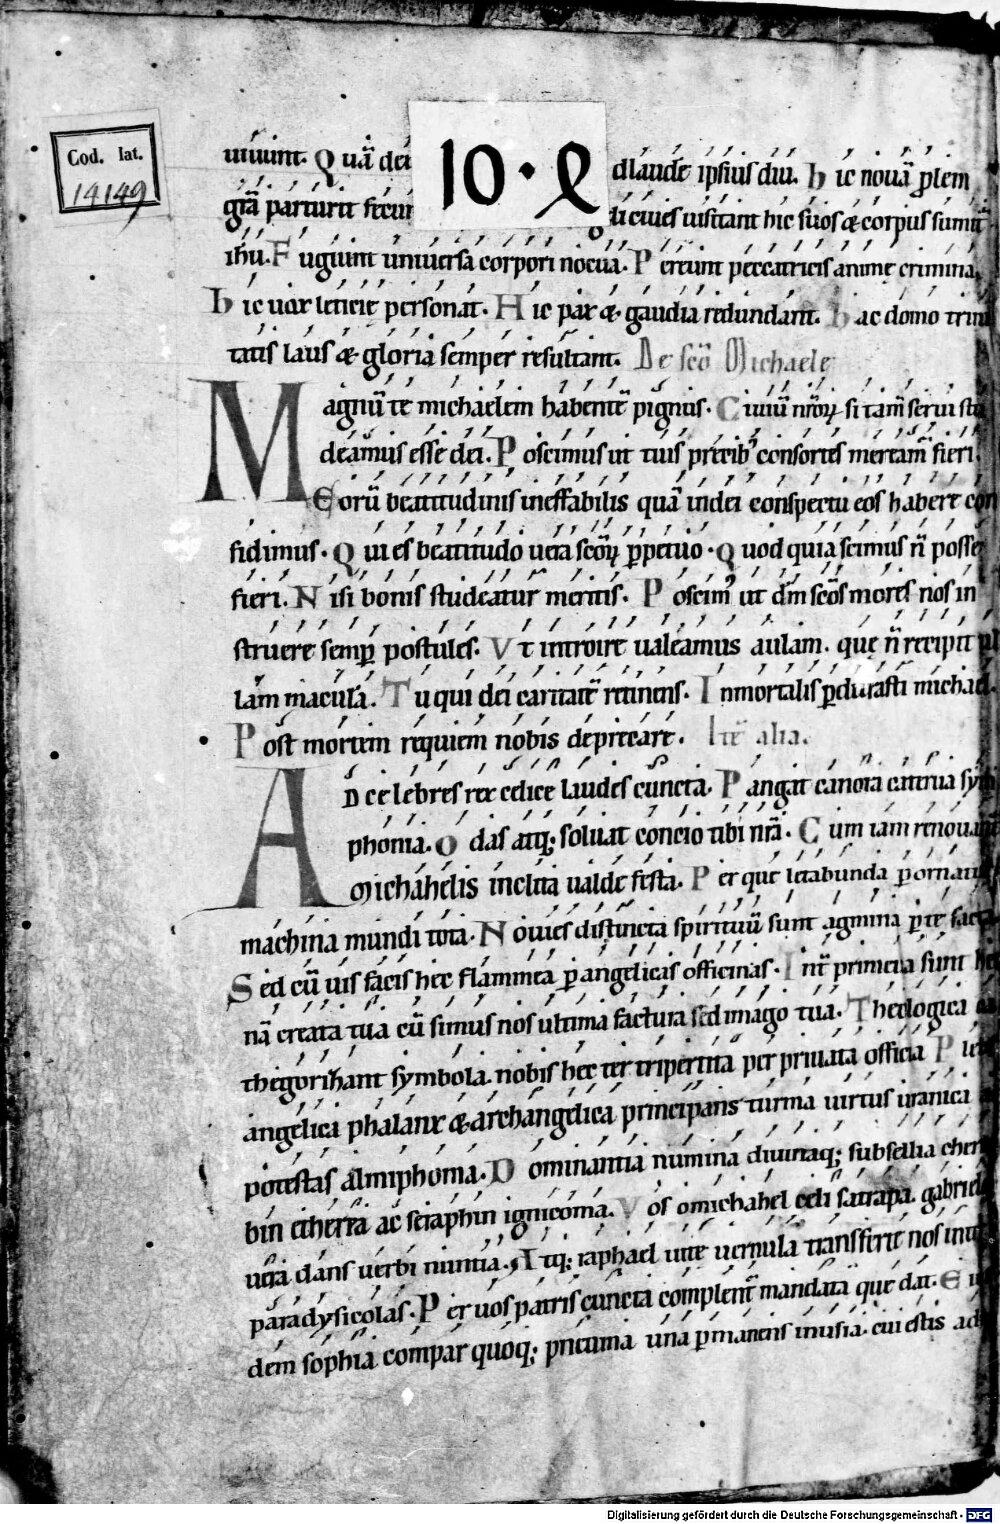 Cod. lat.
14149
10 · e
uiuunt. Quã dei dlaude ipsius diu. Hic nouã ꝓlem
grã parturit fecun gelici ciues uisitant hic suos & corpus sumit
ihu. Fugiunt uniuersa corpori nociua. Pereunt peccatricis animę crimina.
Hic uox leticię personat. Hic pax & gaudia redundant. Hac domo trini
tatis laus & gloria semper resultant. De sco Michaele
Magnũ te michaelem habentẽ pignus. Ciuiũ nroꝝ si tam serui stu
deamus esse dei. Poscimus ut tuis precib; consortes mereamr̃ fieri.
Eorũ beatitudinis ineffabilis quã in dei conspectu eos habere con
fidimus. Qui es beatitudo uera scoꝝ ꝑpetuo. Quod quia scimus ñ posse
fieri. Nisi bonis studeatur meritis. Poscim᷒ ut dm̃ scõs mores nos in
struere semꝑ postules. Vt introire ualeamus aulam. quę ñ recipit ul
lam maculã. Tu qui dei caritatẽ retinens. Inmortalis ꝑdurasti michael.
Post mortem requiem nobis deprecare. Itẽ alia.
AD celebres rex celice laudes cuncta. Pangat canora caterua sym
phonia. Odas atq; soluat concio tibi nr̃a. Cum iam renouant
Michahelis inclita ualde festa. Per que letabunda ꝑornatur
machina mundi tota. Nouies distincta spirituũ sunt agmina ꝑ te facta
Sed cũ uis facis hec flammea ꝑ angelicas officinas. Int̃ primeua sunt hec
nã creata tua cũ simus nos ultima factura sed imago tua. Theologica ca
thegorihant symbola. nobis hec ter tripertita per priuata officia Plebs
angelica phalanx & archangelica principans turma uirtus uranica ac
potestas almiphoma. Dominantia numina diuinaq; subsellia cheru
bin etherea ac seraphin ignicoma. Vos o michahel celi satrapa. gabriel
uera dans uerbi nuntia. Atq; raphael uite uernula transferte nos inter
paradysicolas. Per vos patris cuncta complent̃ mandata que dat. Eius
dem sophia compar quoq; pneuma una ꝑmanens in usia. cui estis ad
Digitalisierung gefördert durch die Deutsche Forschungsgemeinschaft - DFG